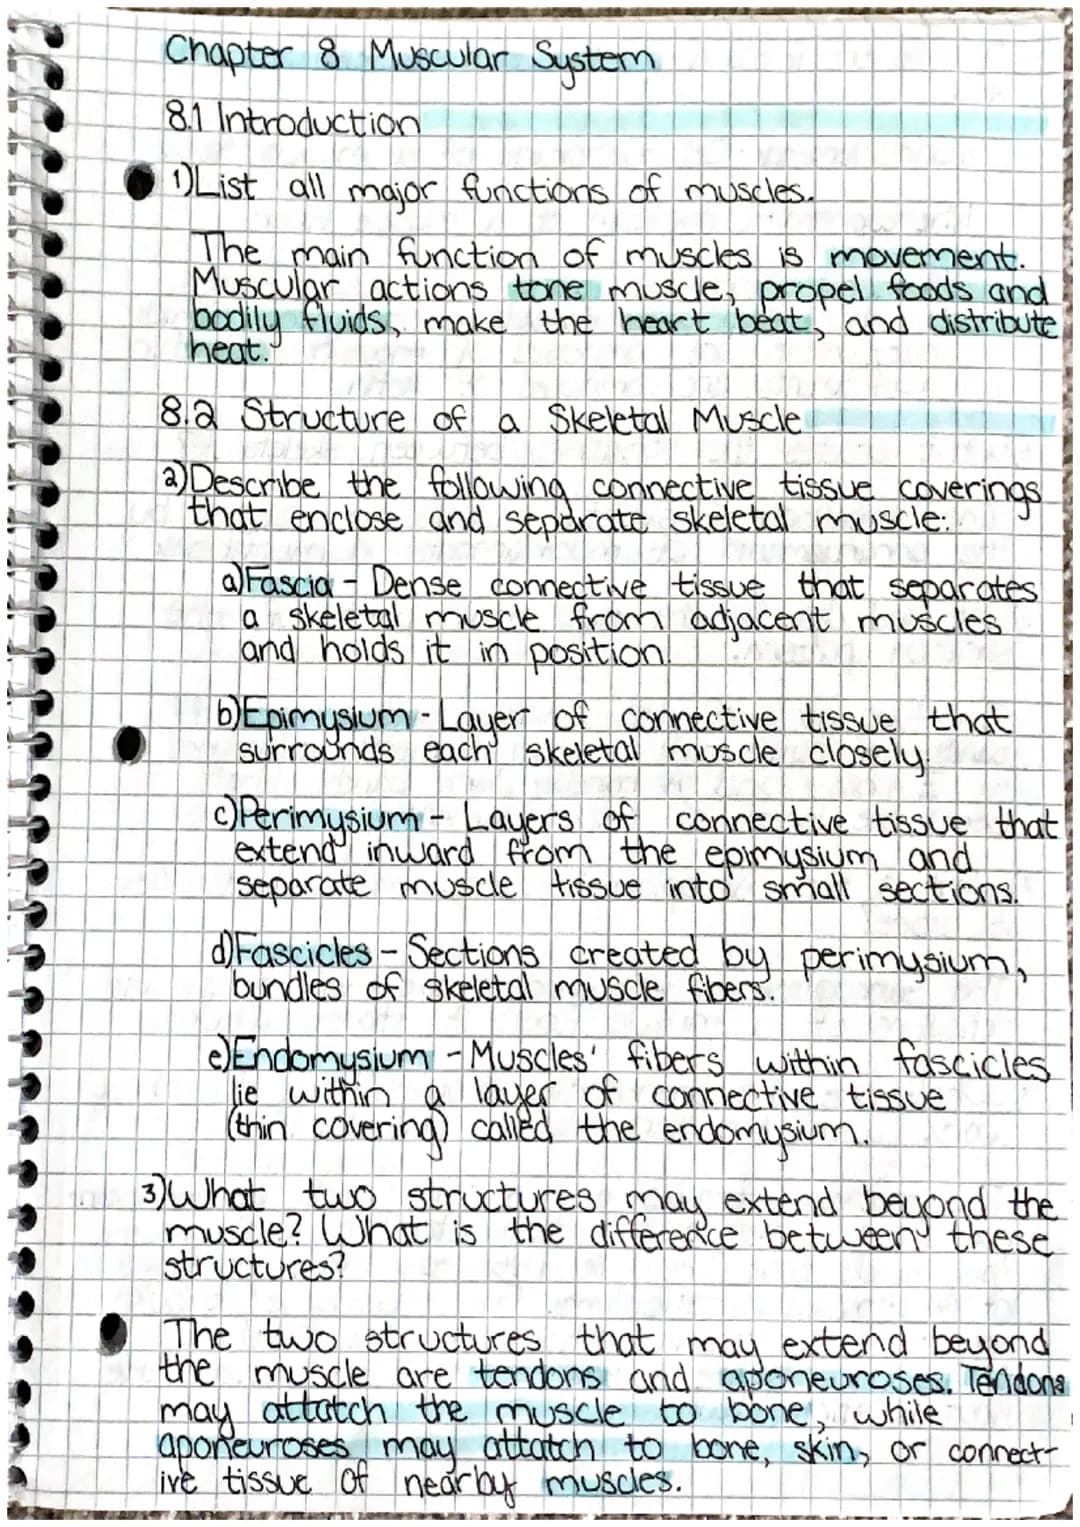 Chapter 8 Muscular System
8.1 Introduction
1)List all major functions of muscles.
The main function of muscles is movement.
Muscular actions tone muscle, propel foods and
bodily fluids, make the heart beat, and distribute
heat.
8.2 Structure of a Skeletal Muscle
2)Describe the following connective tissue coverings
that enclose and separate skeletal muscle:
a)Fascia - Dense connective tissue that separates
a skeletal muscle from adjacent muscles
and holds it in position.
b)Epimysium - Layer of connective tissue that
surrounds each skeletal muscle closely.
c)Perimysium - Layers of connective tissue that
extend inward from the epimysium and
separate muscle tissue into small sections.
d)Fascicles - Sections created by perimysium,
bundles of skeletal muscle fibers.
e)Endomysium - Muscles' fibers within fascicles
lie within a layer of connective tissue
(thin covering) called the endomysium.
3)What two structures may extend beyond the
muscle? What is the difference between these
structures?
The two structures that may extend beyond
the muscle are tendons and aponeuroses. Tendons
may attatch the muscle to bone, while
aponeuroses may attatch to bone, skin, or connect-
ive tissue of nearby muscles.